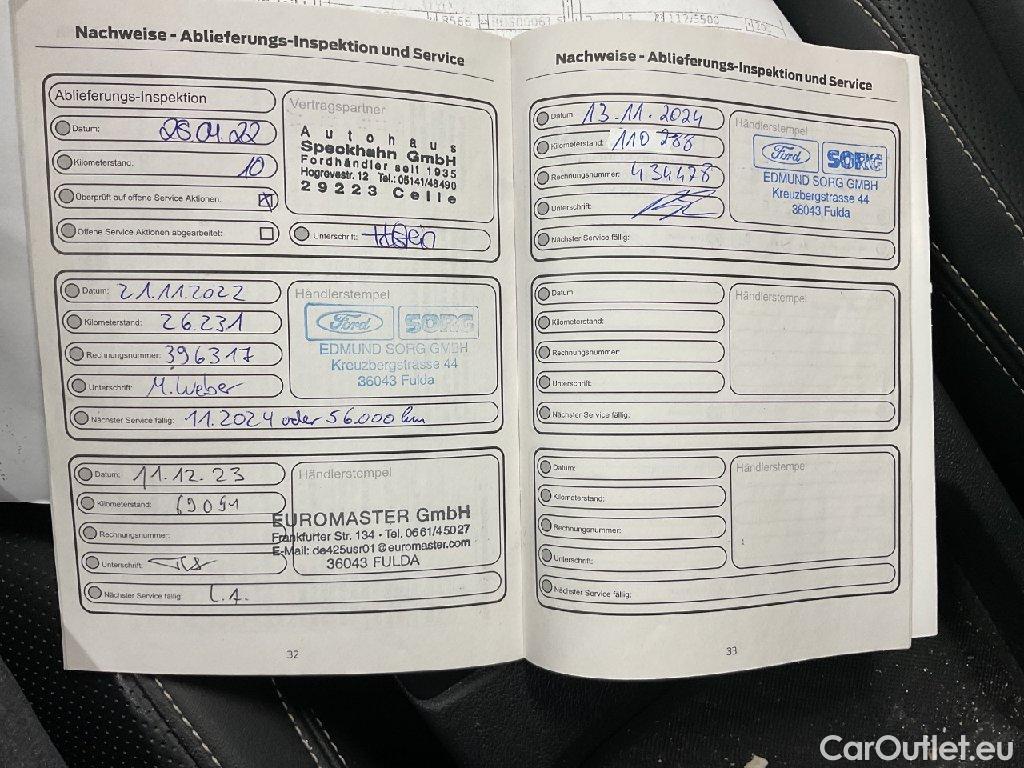 Nachweise - Ablieferungs-Inspektion und Service
Ablieferungs-Inspektion
Datum:
Kilometerstand: 10
Überprüft auf offene Service Aktionen:
Offene Service Aktionen abgearbeitet:
Vertragspartner
Autohaus
Speckhahn GmbH
Fordhändler seit 1935
Hogrevestr. 12 Tel.: 05141/48490
29223 Celle
Unterschrift:
Datum: 21.11.2022
Kilometerstand: 26.231
Rechnungsnummer: 396317
Unterschrift: M. Weber
Nächster Service fällig: 11.2024 oder 56.000 km
Händlerstempel
Ford SORG
EDMUND SORG GMBH
Kreuzbergstrasse 44
36043 Fulda
Datum: 11.12.23
Kilometerstand: 69051
Rechnungsnummer:
Unterschrift:
Nächster Service fällig:
Händlerstempel
EUROMASTER GmbH
Frankfurter Str. 134 - Tel. 0661/45027
E-Mail: de425usr01@euromaster.com
36043 FULDA
32
Nachweise - Ablieferungs-Inspektion und Service
Datum: 13.11.2024
Kilometerstand: 110 288
Rechnungsnummer: 434478
Unterschrift:
Nächster Service fällig:
Händlerstempel
Ford SORG
EDMUND SORG GMBH
Kreuzbergstrasse 44
36043 Fulda
Datum:
Kilometerstand:
Rechnungsnummer:
Unterschrift:
Nächster Service fällig:
Händlerstempel
Datum:
Kilometerstand:
Rechnungsnummer:
Unterschrift:
Nächster Service fällig:
Händlerstempel
33
CarOutlet.eu